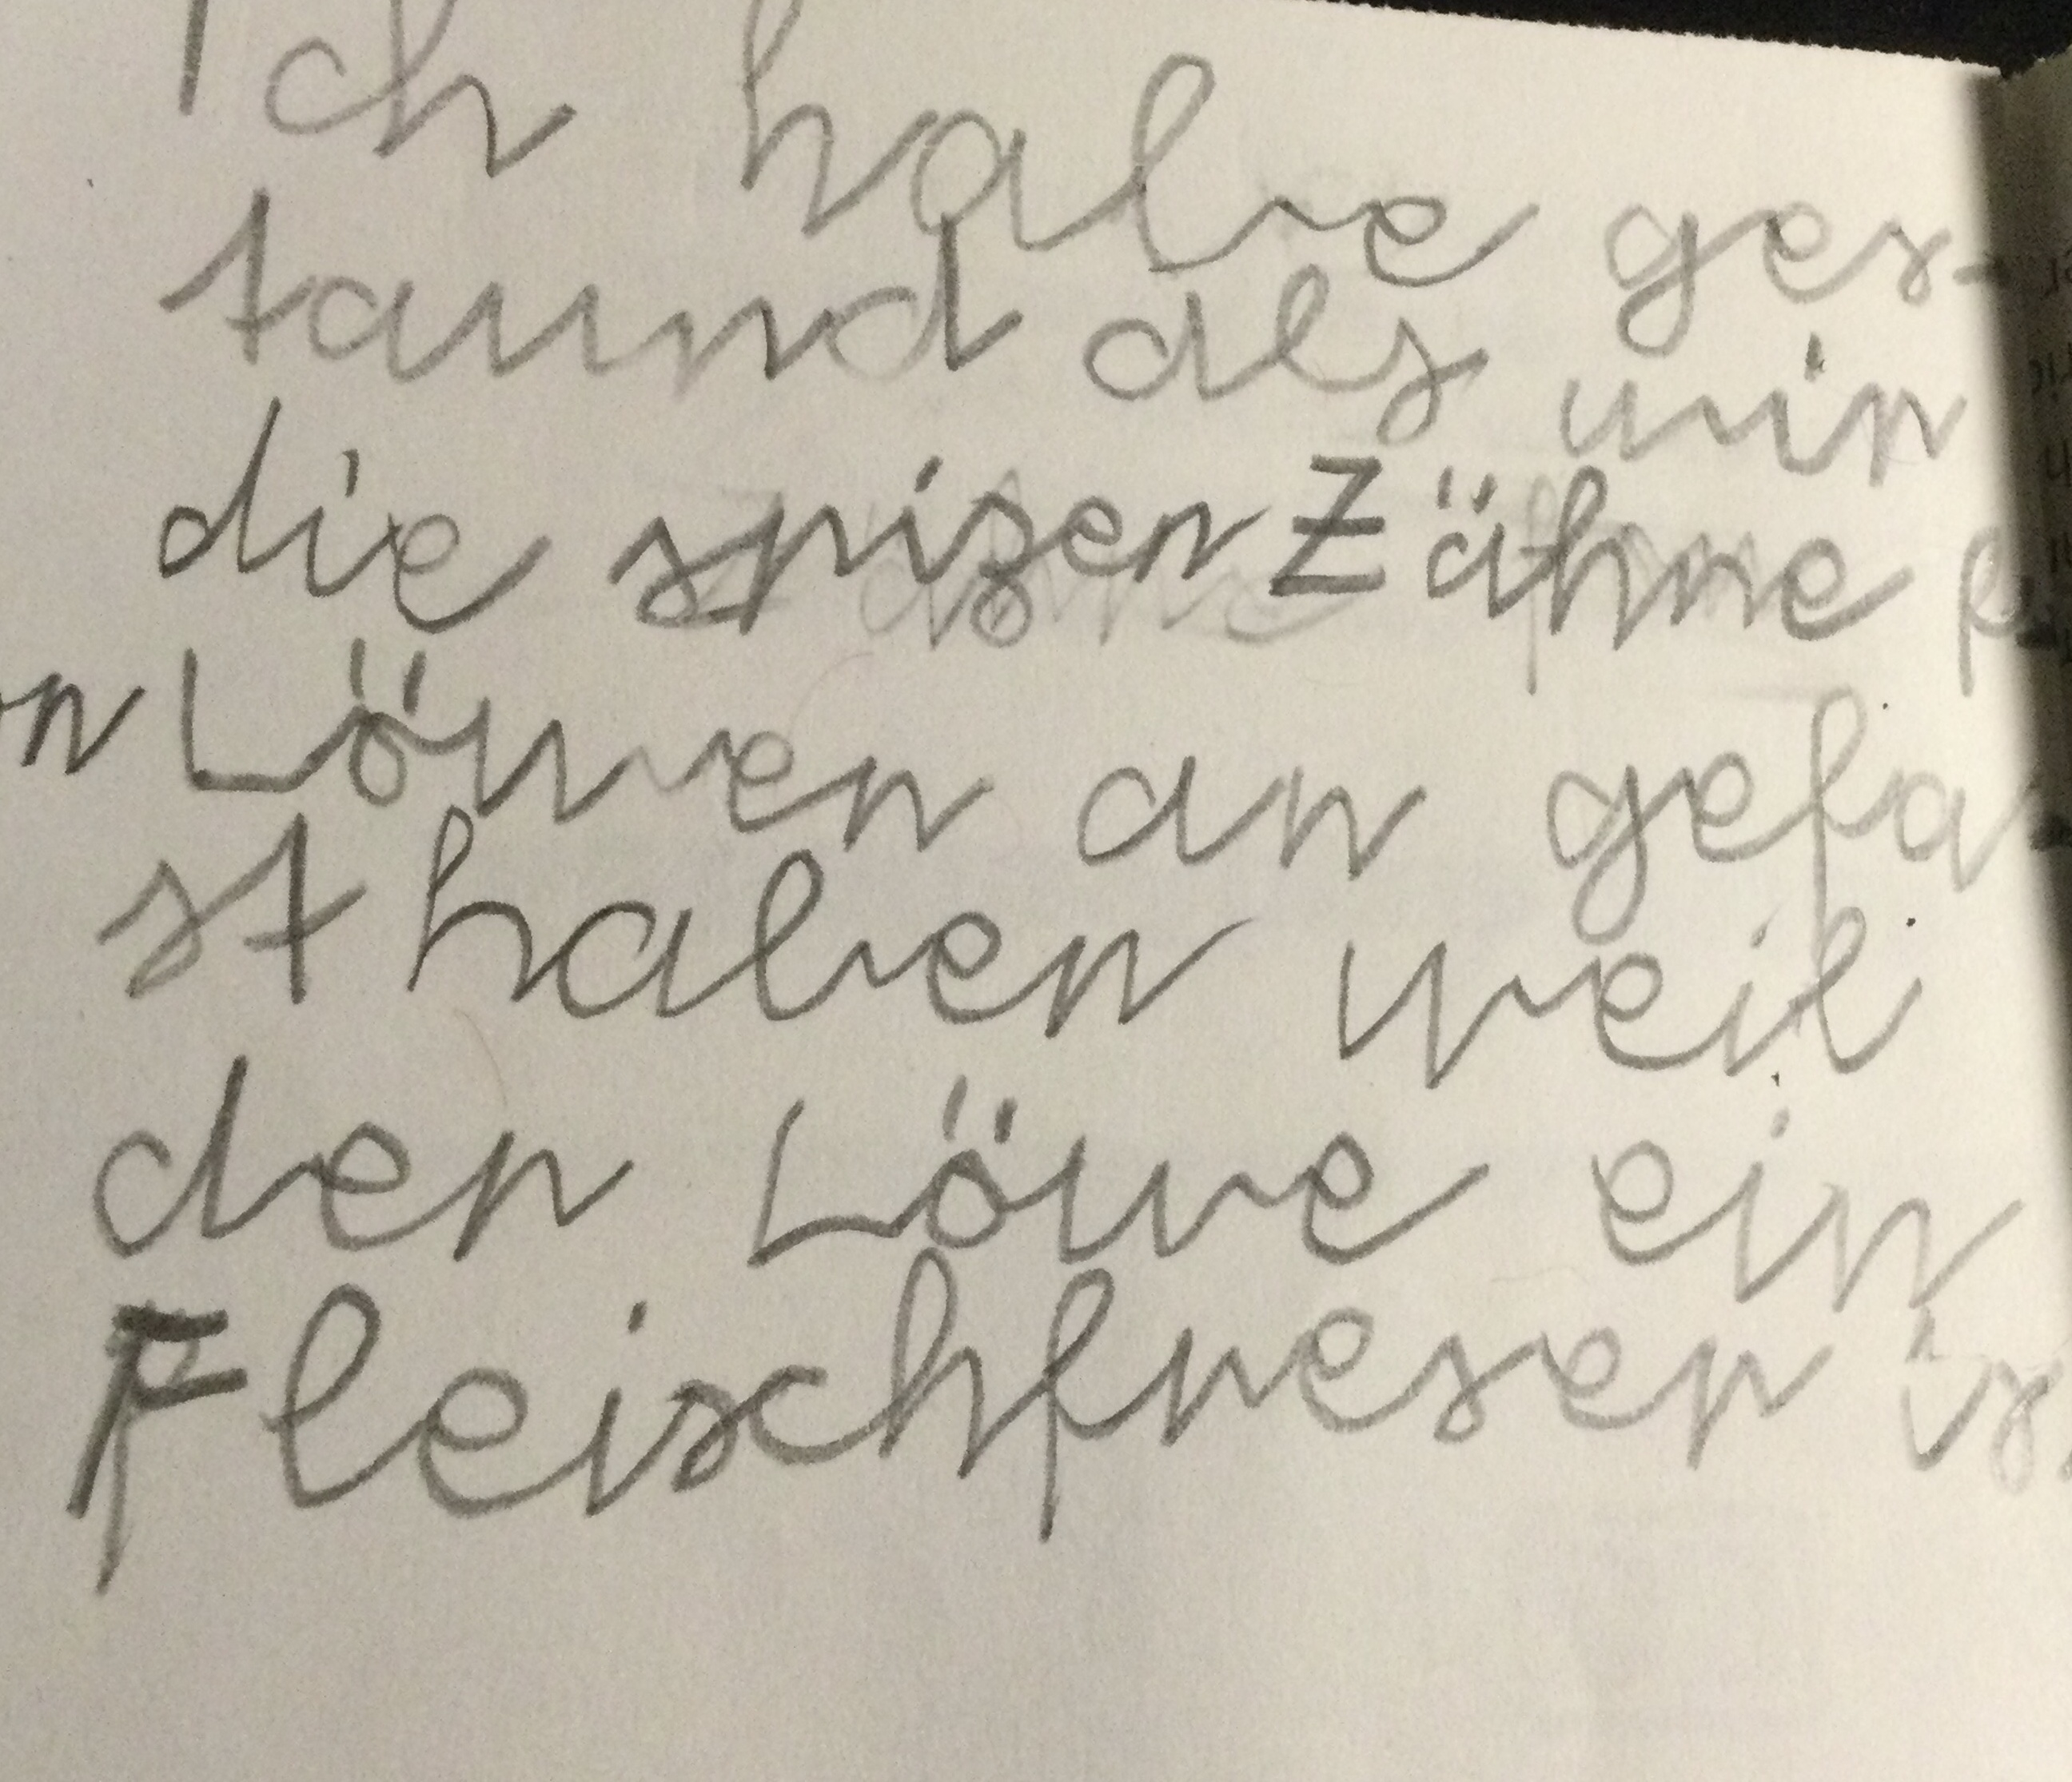 Ich habe ges-
taund als wir
die spizen Zähne
Löwen an gefa
st haben weil
der Löwe ein
Fleischfreser is